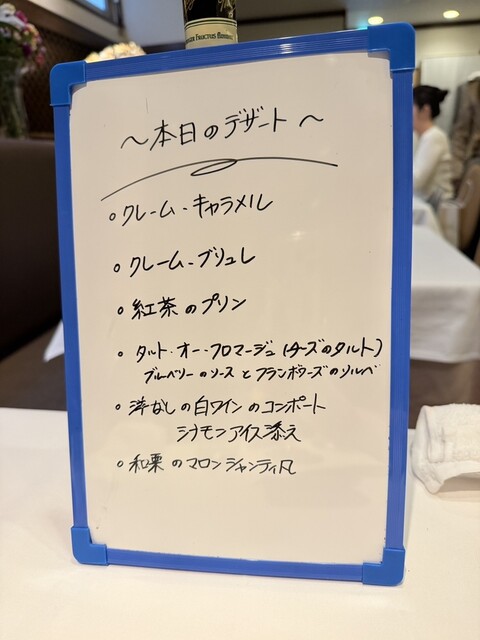 ～本日のデザート～
○クレーム・キャラメル
○クレーム・ブリュレ
○紅茶のプリン
○タルト・オー・フロマージュ(チーズのタルト)
ブルーベリーのソースとフランボワーズのソルベ
○洋なしの白ワインのコンポート
シナモンアイス添え
○和栗のマロンシャンティ